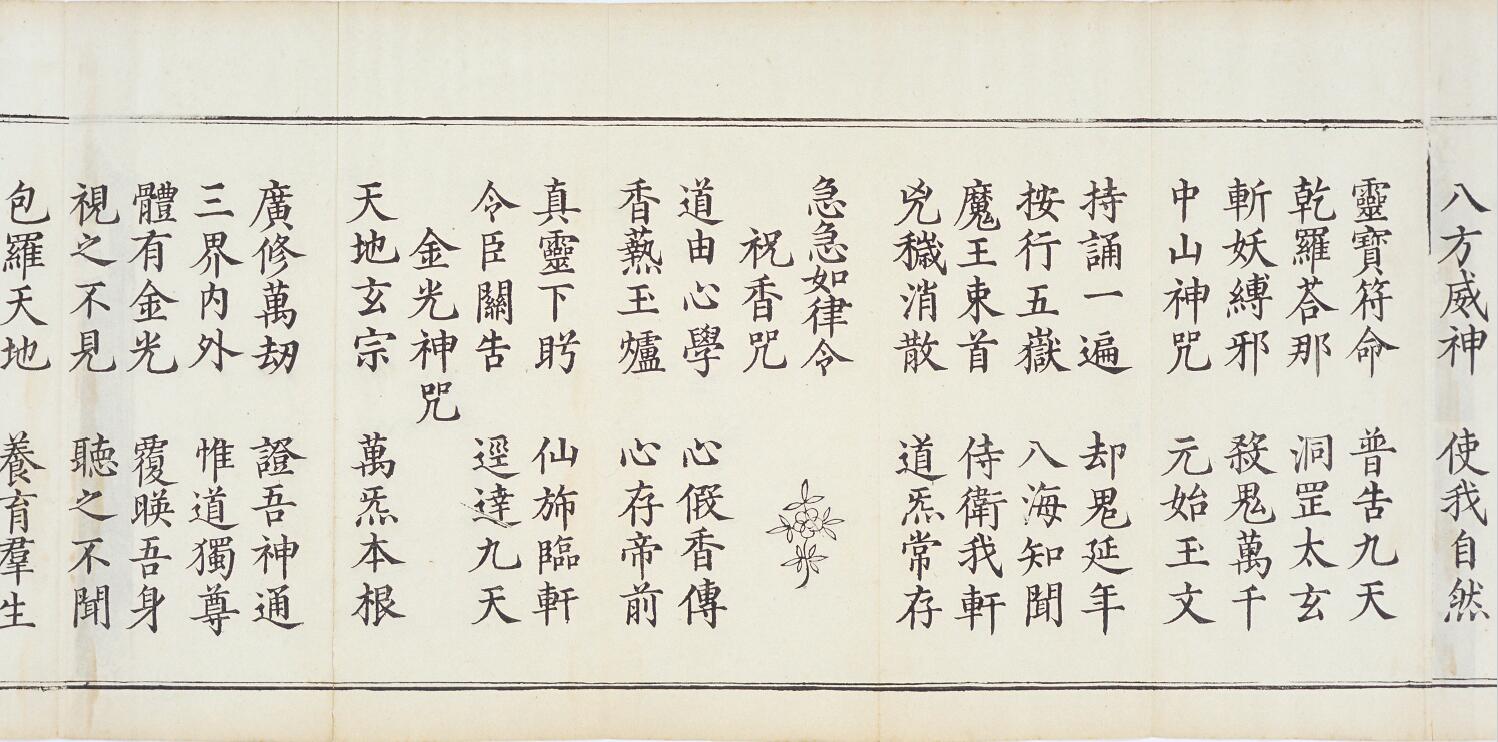 八方威神　使我自然
靈寶符命　普告九天
乾羅荅那　洞罡太玄
斬妖縛邪　殺鬼萬千
中山神咒　元始玉文
持誦一遍　却鬼延年
按行五嶽　八海知聞
魔王束首　侍衛我軒
兇穢消散　道炁常存
急急如律令
祝香咒
道由心學　心假香傳
香爇玉爐　心存帝前
真靈下盻　仙斾臨軒
令臣關告　逕達九天
金光神咒
天地玄宗　萬炁本根
廣修萬劫　證吾神通
三界内外　惟道獨尊
體有金光　覆暎吾身
視之不見　聽之不聞
包羅天地　養育羣生